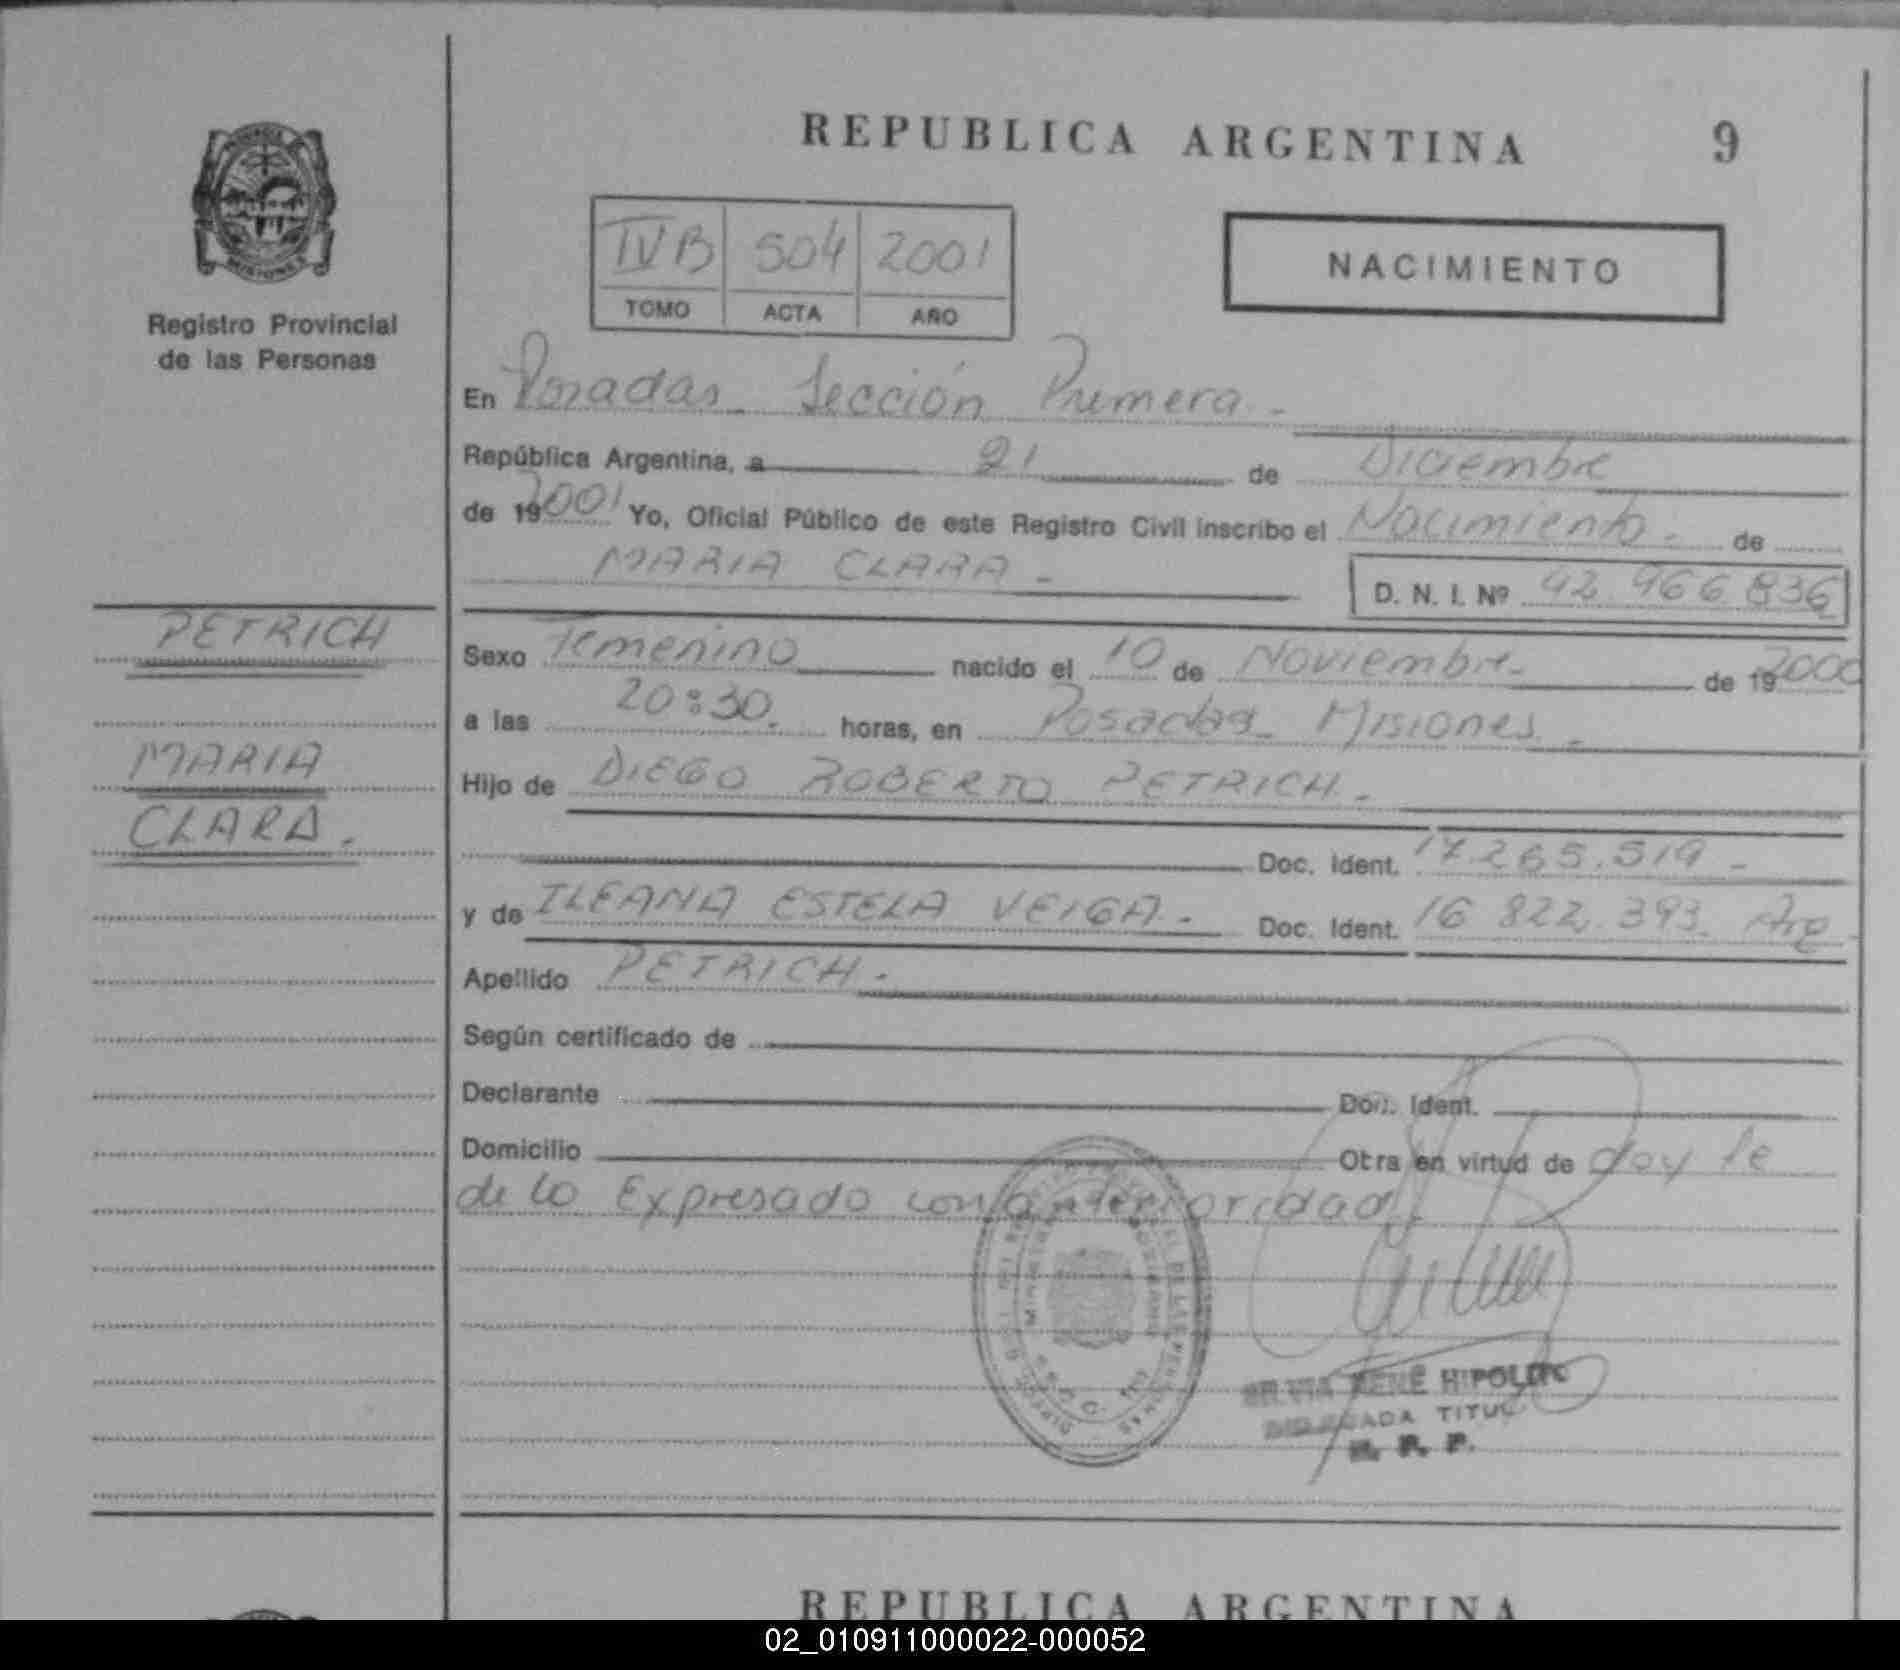 REPUBLICA ARGENTINA 9
IVB 504 2001
TOMO ACTA AÑO
NACIMIENTO
MISIONES
Registro Provincial
de las Personas
En Posadas Sección Primera -
República Argentina, a 21 de Diciembre
de 19 2001 Yo, Oficial Público de este Registro Civil inscribo el Nacimiento - de
MARIA CLARA - D. N. I. Nº 42.966.836
PETRICH
MARIA
CLARA.
Sexo Femenino nacido el 10 de Noviembre - de 19 2000
a las 20:30. horas, en Posadas - Misiones -
Hijo de DIEGO ROBERTO PETRICH -
Doc. Ident. 17.265.519 -
y de ILEANA ESTELA VEIGA - Doc. Ident. 16 822.393. Arg
Apellido PETRICH -
Según certificado de
Declarante Doc. Ident.
Domicilio Otra en virtud de doy fe
de lo Expresado con anterioridad.
SILVIA RENE HIPOLITO
DELEGADA TITUL
R. P. P.
REPUBLICA ARGENTINA
02_010911000022-000052